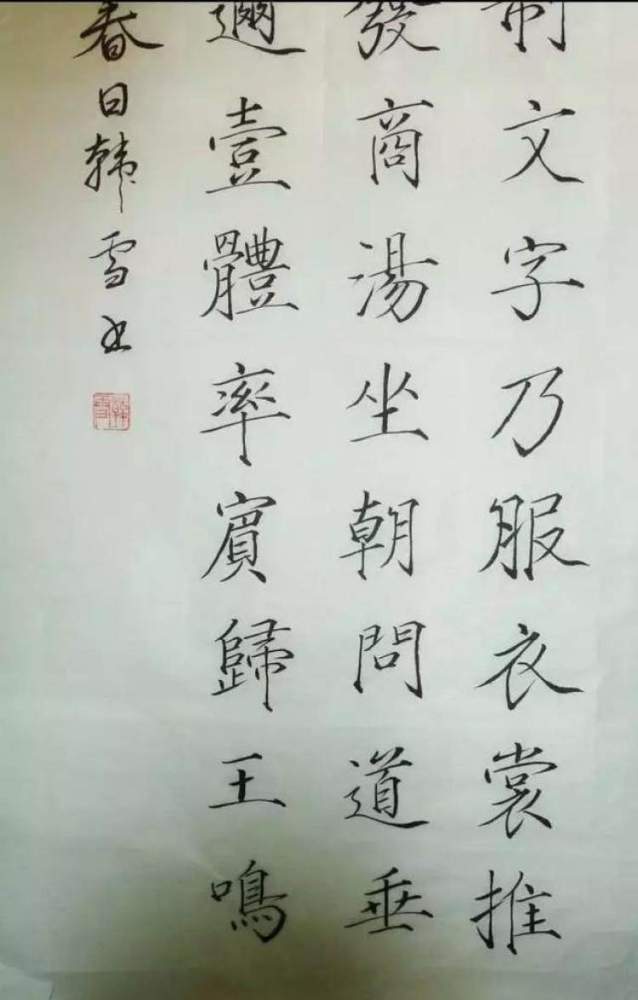 制文字乃服衣裳推
發商湯坐朝問道垂
邇壹體率賓歸王鳴
春日韓雪书